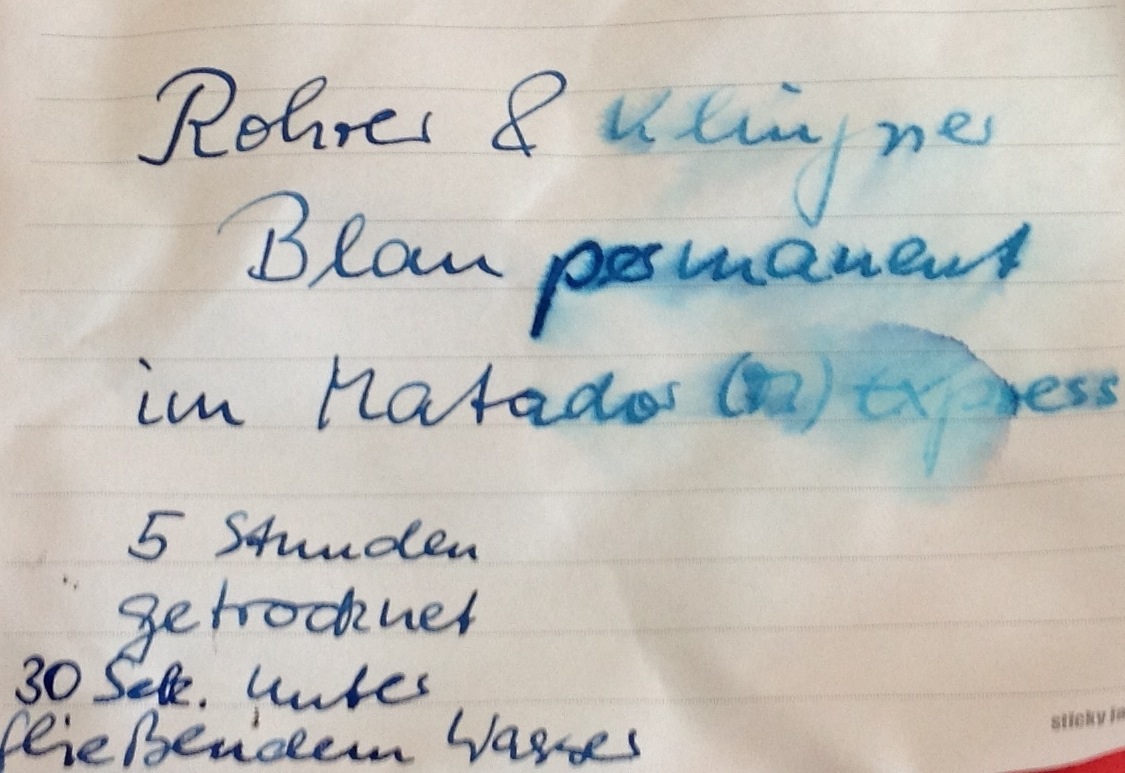 Rohrer & Klingner
Blau permanent
im Matador Express
5 Stunden
getrocknet
30 Sek. unter
fließendem Wasser
sticky ja